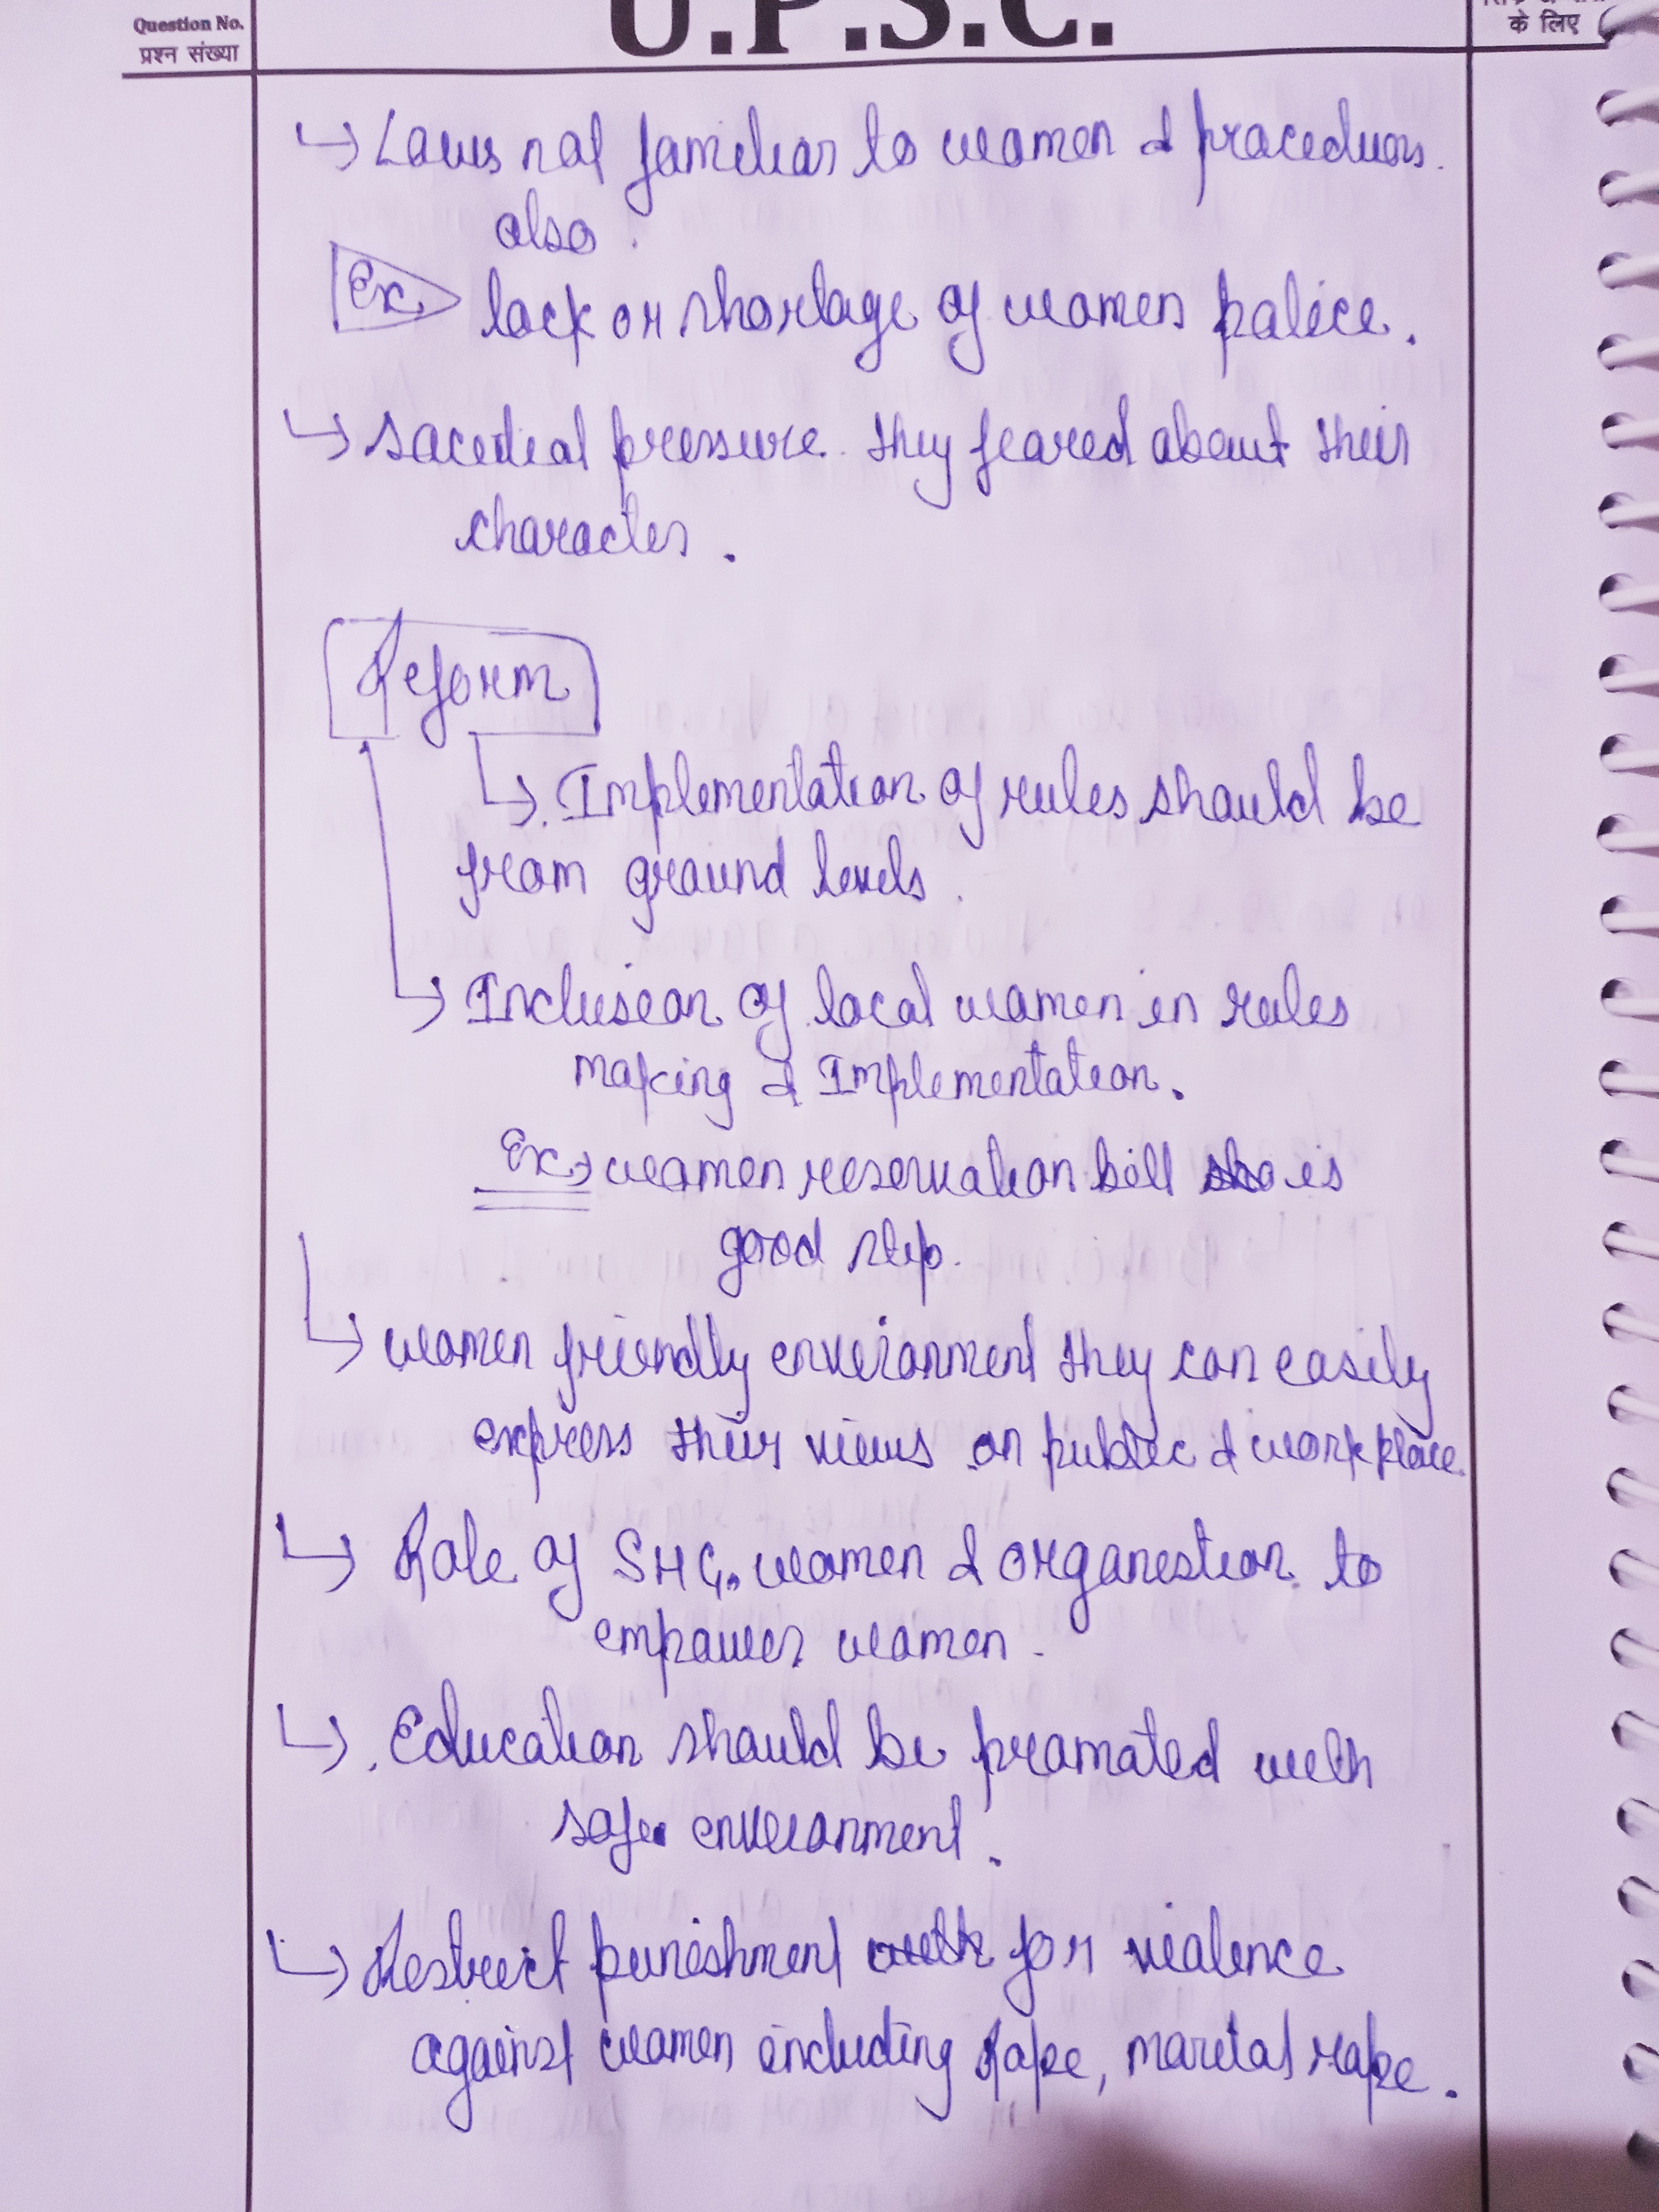 Question No.
प्रश्न संख्या
U.P.S.C.
के लिए
↳ Laws not familiar to women & procedures
also.
Ex lack or shortage of women police.
↳ societal pressure. they feared about their
character.
Reform
↳ Implementation of rules should be
from ground levels.
↳ Inclusion of local women in rules
making & Implementation.
Ex → women reservation bill is
good step.
↳ women friendly environment they can easily
express their views on public & workplace.
↳ Role of SHG, women & organestion to
empower women.
↳ Education should be promoted with
safe environment.
↳ Restrict punishment for violence
against women including Rape, marital rape.